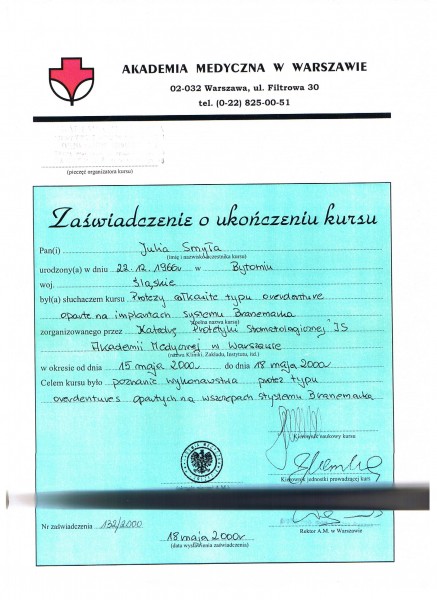 AKADEMIA MEDYCZNA W WARSZAWIE
02-032 Warszawa, ul. Filtrowa 30
tel. (0-22) 825-00-51
(pieczęć organizatora kursu)
Zaświadczenie o ukończeniu kursu
Pan(i) Julia Smyła
(imię i nazwisko uczestnika kursu)
urodzony(a) w dniu 22.12.1960r w Bytomiu
woj. śląskie
był(a) słuchaczem kursu Protezy całkowite typu overdenture
oparte na implantach systemu Branemarka
(pełna nazwa kursu)
zorganizowanego przez Katedrę Protetyki Stomatologicznej IS
Akademii Medycznej w Warszawie
(nazwa Kliniki, Zakładu, Instytutu, itd.)
w okresie od dnia 15 maja 2000r do dnia 18 maja 2000r
Celem kursu było poznanie wykonawstwa protez typu
overdentures opartych na wszczepach systemu Branemarka
Kierownik naukowy kursu
Kierownik jednostki prowadzącej kurs
Rektor A.M. w Warszawie
Nr zaświadczenia 132/2000
18 maja 2000r
(data wystawienia zaświadczenia)